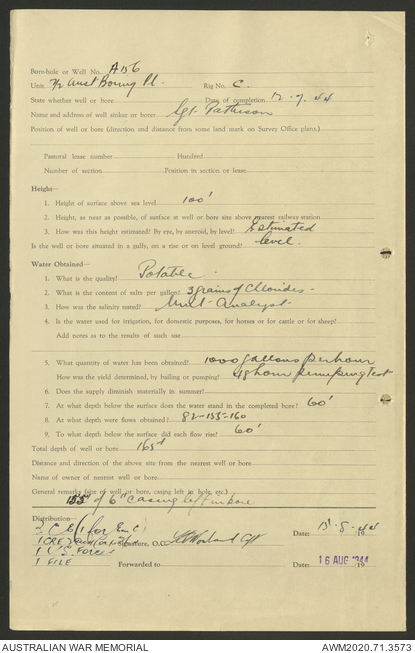 Bore-hole or Well No. A156
Unit 7/2 Aust Boring Pl. Rig No. C.
State whether well or bore Date of completion 12-7-44
Name and address of well sinker or borer Sgt. Pattison
Position of well or bore (direction and distance from some land mark on Survey Office plans.)
Pastoral lease number Hundred
Number of section Position in section or lease
Height—
1. Height of surface above sea level 100'
2. Height, as near as possible, of surface at well or bore site above nearest railway station
3. How was this height estimated? By eye, by aneroid, by level? Estimated
Is the well or bore situated in a gully, on a rise or on level ground? level.
Water Obtained—
1. What is the quality? Potable
2. What is the content of salts per gallon? 3 grains of Chlorides -
3. How was the salinity tested? Analyst
4. Is the water used for irrigation, for domestic purposes, for horses or for cattle or for sheep?
Add notes as to the results of such use
5. What quantity of water has been obtained? 1000 gallons per hour
How was the yield determined, by bailing or pumping? 48 hour pumping test
6. Does the supply diminish materially in summer?
7. At what depth below the surface does the water stand in the completed bore? 60'
8. At what depth were flows obtained? 82-135-160
9. To what depth below the surface did each flow rise? 60'
Total depth of well or bore 165'
Distance and direction of the above site from the nearest well or bore
Name of owner of nearest well or bore
General remarks (size of well or bore, casing left in hole, etc.)
155' of 6" casing left in bore
Distribution—
Signature, O.C. Date: 13-8-44
1 U.S. Forces
1 FILE Forwarded to Date: 16 AUG 1944
AUSTRALIAN WAR MEMORIAL AWM2020.71.3573